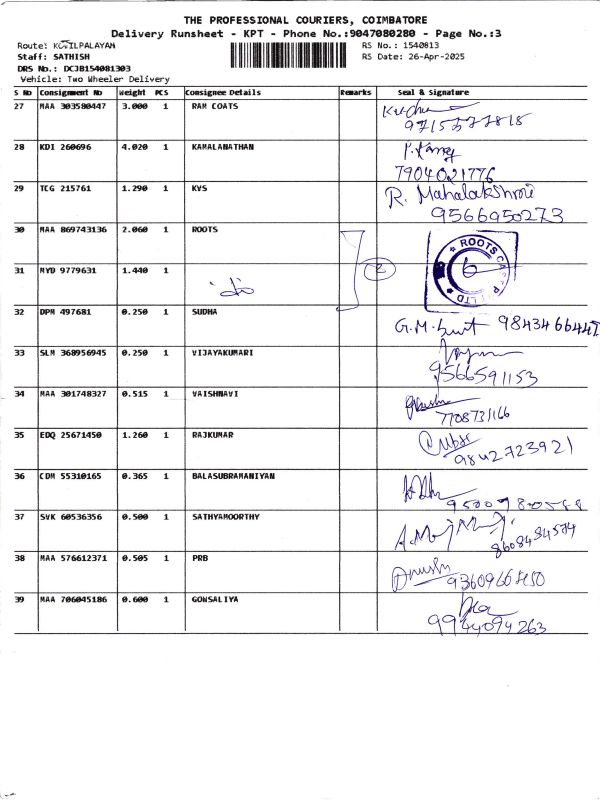 THE PROFESSIONAL COURIERS, COIMBATORE
Delivery Runsheet - KPT - Phone No.:9047080280 - Page No.:3
Route: KOVILPALAYAM RS No.: 1540813
Staff: SATHISH RS Date: 26-Apr-2025
DRS No.: DCJB154081303
Vehicle: Two Wheeler Delivery
S No Consignment No Weight PCS Consignee Details Remarks Seal & signature
27 MAA 303580447 3.000 1 RAM COATS
9715577818
28 KDI 260696 4.020 1 KAMALANATHAN
7904021776
29 TCG 215761 1.290 1 KVS R. Mahalakshmi
9566950273
30 MAA 869743136 2.060 1 ROOTS ROOTS
2
31 MYD 9779631 1.440 1
32 DPM 497681 0.250 1 SUDHA
G.M. 9843466447
33 SLM 368956945 0.250 1 VIJAYAKUMARI
9566591153
34 MAA 301748327 0.515 1 VAISHNAVI
7708731166
35 EDQ 25671450 1.260 1 RAJKUMAR
9842723921
36 CDM 55310165 0.365 1 BALASUBRAMANIYAN
37 SVK 60536356 0.500 1 SATHYAMOORTHY
38 MAA 576612371 0.505 1 PRB
39 MAA 706045186 0.600 1 GOWSALIYA
9944094263